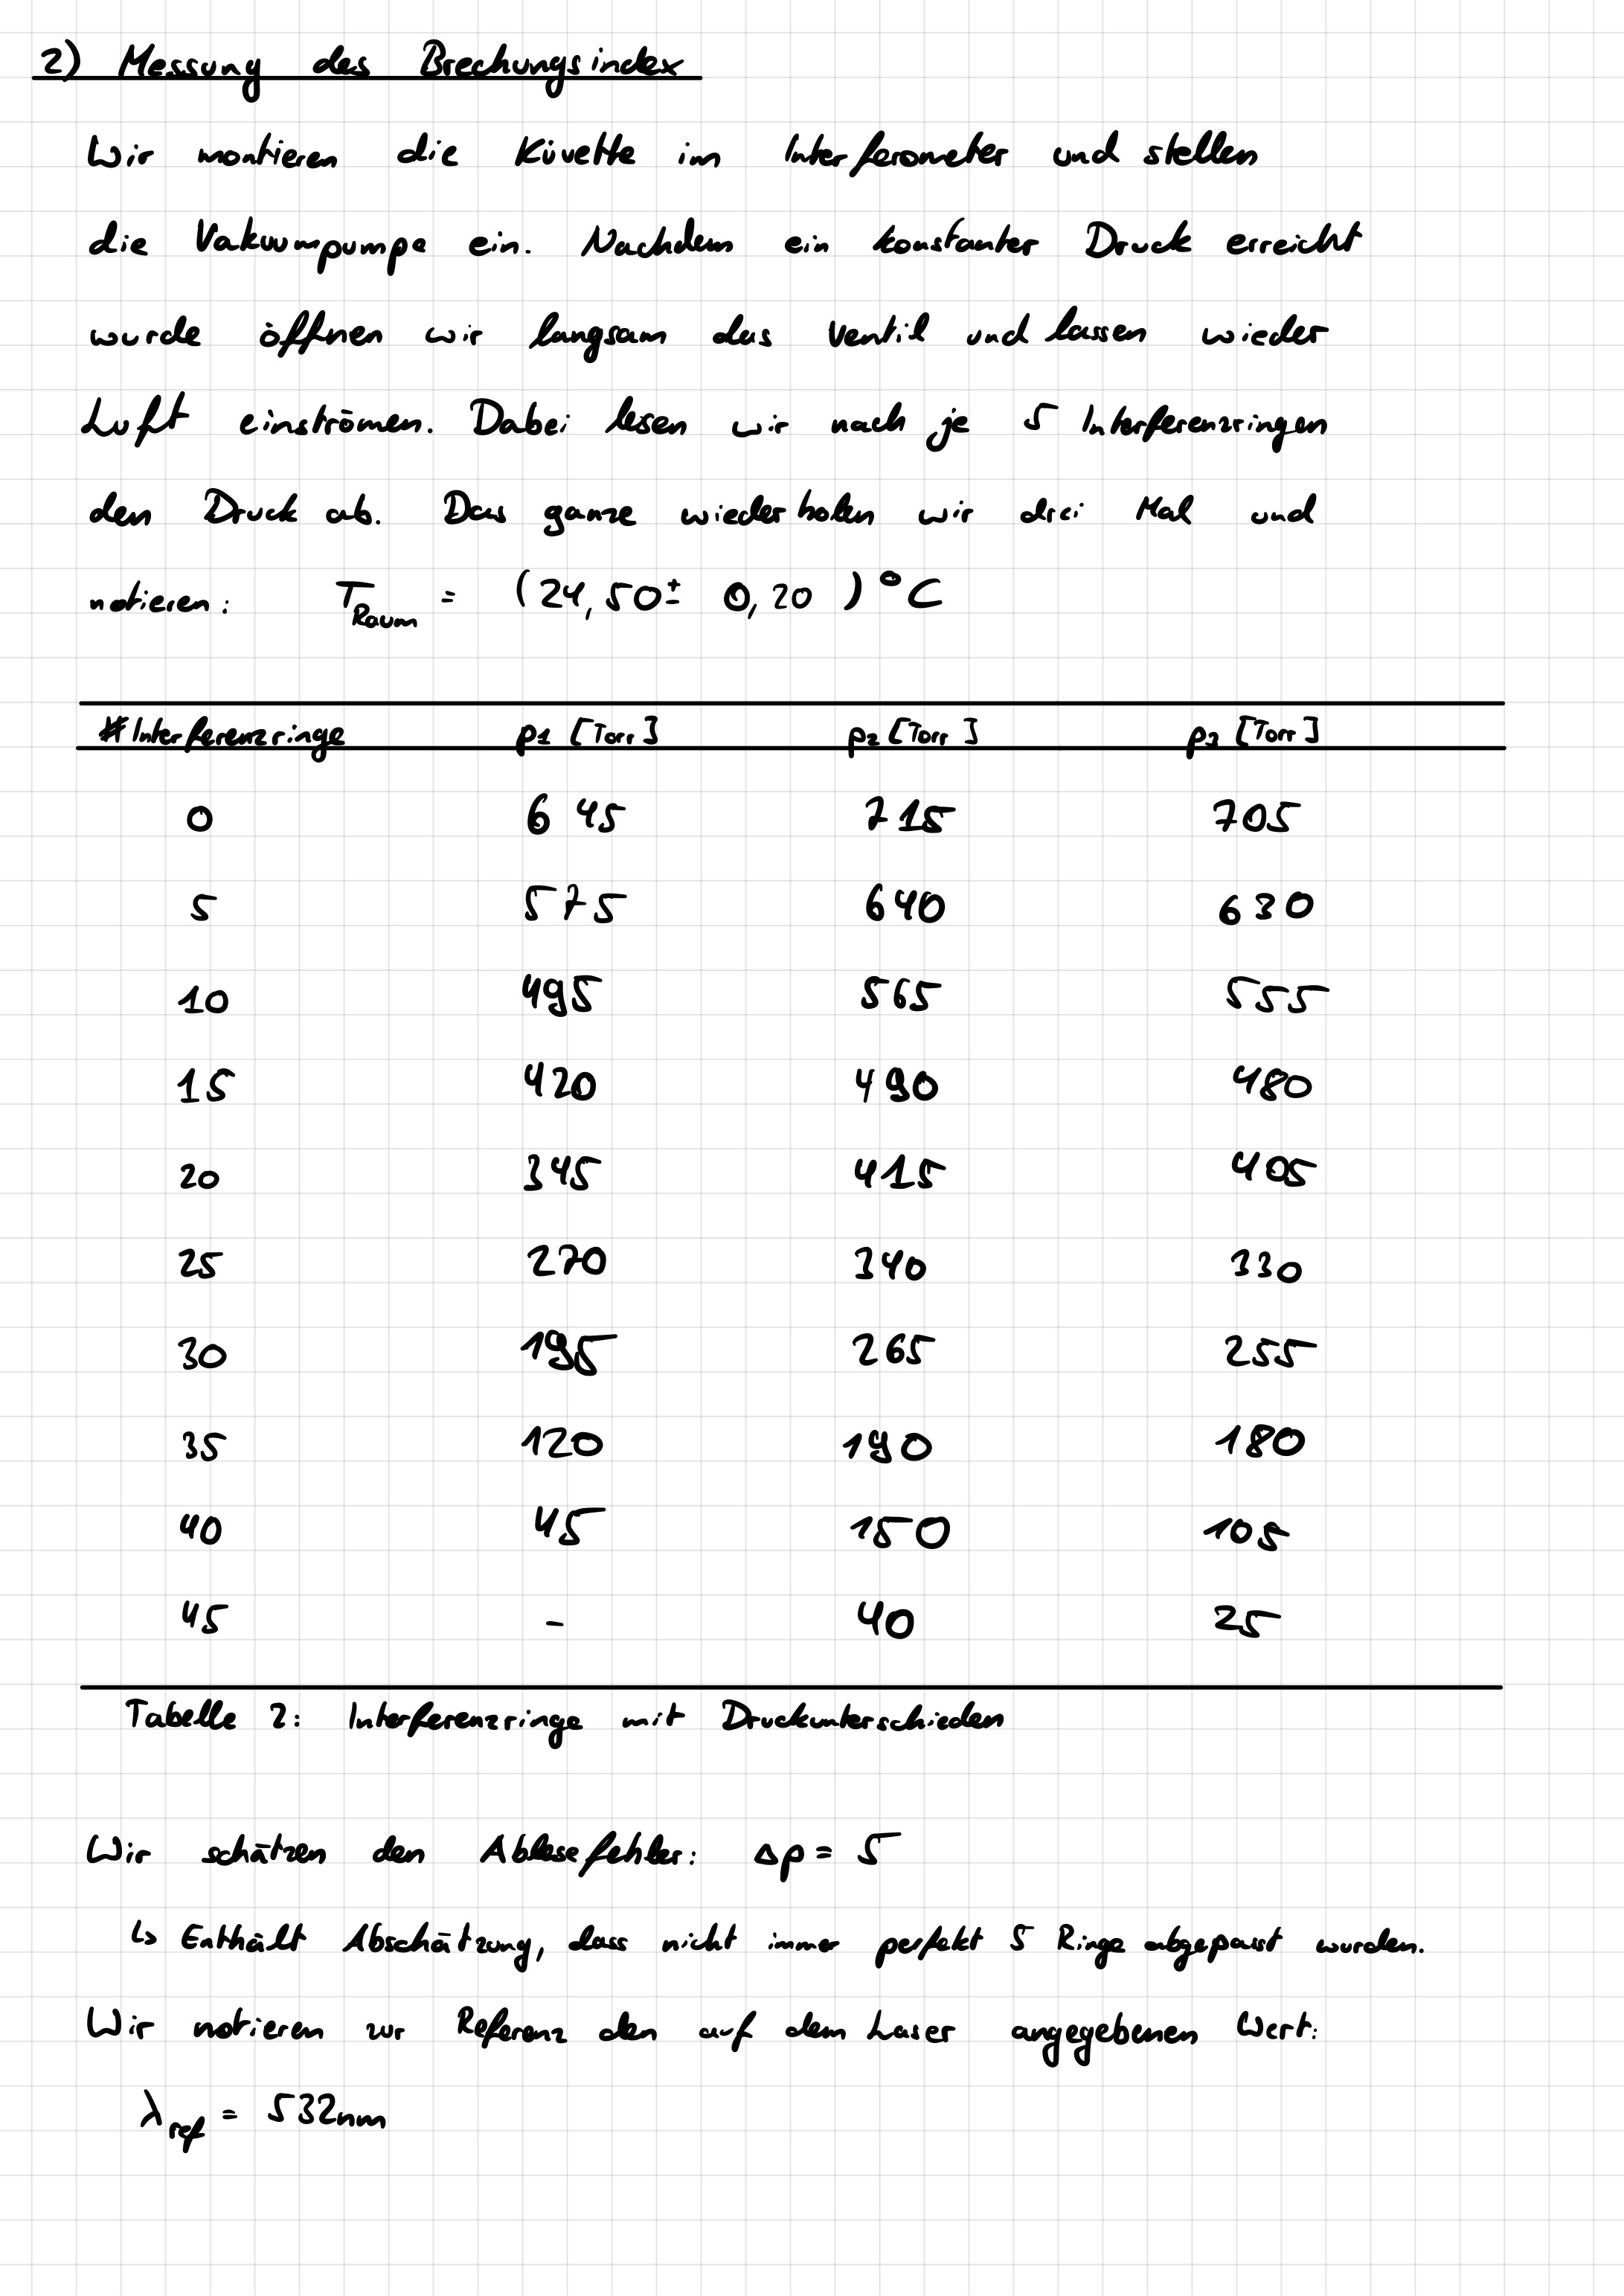 2) Messung des Brechungsindex
Wir montieren die Küvette im Interferometer und stellen
die Vakuumpumpe ein. Nachdem ein konstanter Druck erreicht
wurde öffnen wir langsam das Ventil und lassen wieder
Luft einströmen. Dabei lesen wir nach je 5 Interferenzringen
den Druck ab. Das ganze wiederholen wir drei Mal und
notieren: T_Raum = (24,50 ± 0,20) °C
# Interferenzringe p1 [Torr] p2 [Torr] p3 [Torr]
0 645 715 705
5 575 640 630
10 495 565 555
15 420 490 480
20 345 415 405
25 270 340 330
30 195 265 255
35 120 190 180
40 45 150 105
45 - 40 25
Tabelle 2: Interferenzringe mit Druckunterschieden
Wir schätzen den Ablesefehler: Δp = 5
↳ Enthält Abschätzung, dass nicht immer perfekt 5 Ringe abgepasst wurden.
Wir notieren zur Referenz den auf dem Laser angegebenen Wert:
λ_ref = 532nm